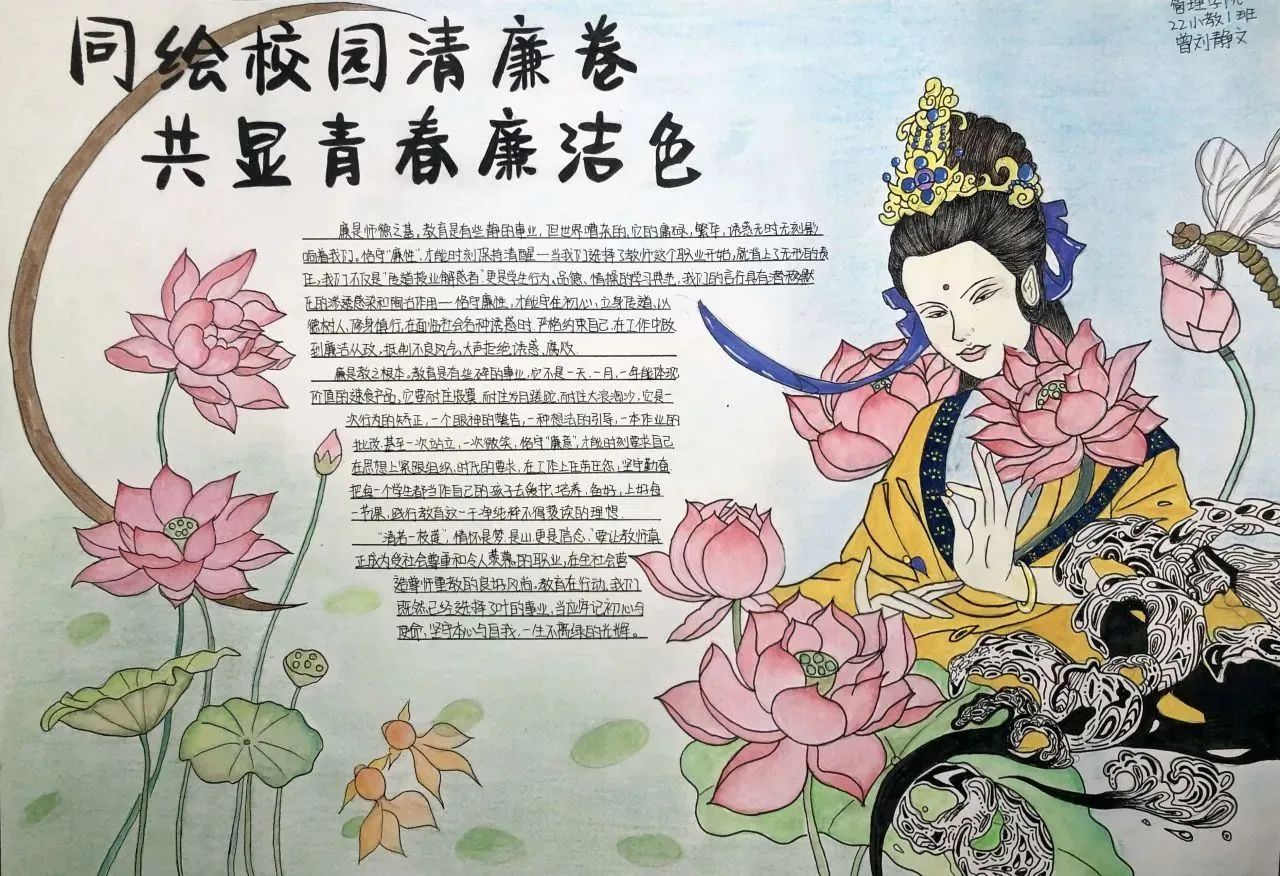 同绘校园清廉卷
共显青春廉洁色
管理学院
22小教1班
曾刘静文
廉是师德之基。教育是有些静的事业，但世界嘈杂的，它的庸碌，繁华，诱惑无时无刻影
响着我们。恪守"廉性"，才能时刻保持清醒—当我们选择了教师这个职业开始，就背上了无形的责
任，我们不仅是"传道授业解惑者"更是学生行为、品德、情操的学习典范，我们的言行具有潜移默
化的渗透感染和陶冶作用—恪守廉性，才能守住初心，立身传道、以
德树人，修身慎行，在面临社会各种诱惑时，严格约束自己，在工作中做
到廉洁从政，抵制不良风气，大声拒绝诱惑、腐败.
廉是教之根本。教育是有些碎的事业，它不是一天、一月、一年能体现
价值的速食产品，它要耐住寂寞，耐住岁月蹉跎，耐住大浪淘沙，它是一
次行为的矫正，一个眼神的警告，一种想法的引导，一本作业的
批改.甚至一次站立，一次微笑，恪守"廉意"，才能时刻要求自己
在思想上紧跟组织，时代的要求，在工作上任劳任怨，坚守勤奋
把每一个学生都当作自己的孩子去爱护，培养，备好，上好每
一节课，践行教育这一干净纯粹不得亵渎的理想
"清者一枝莲"，情怀是梦，是山，更是信念，"要让教师真
正成为受社会尊重和令人羡慕的职业，在全社会营
造尊师重教的良好风尚。教育在行动，我们
既然已经选择了叶的事业，当应牢记初心与
使命，坚守本心与自我，一生不离绿的光辉。